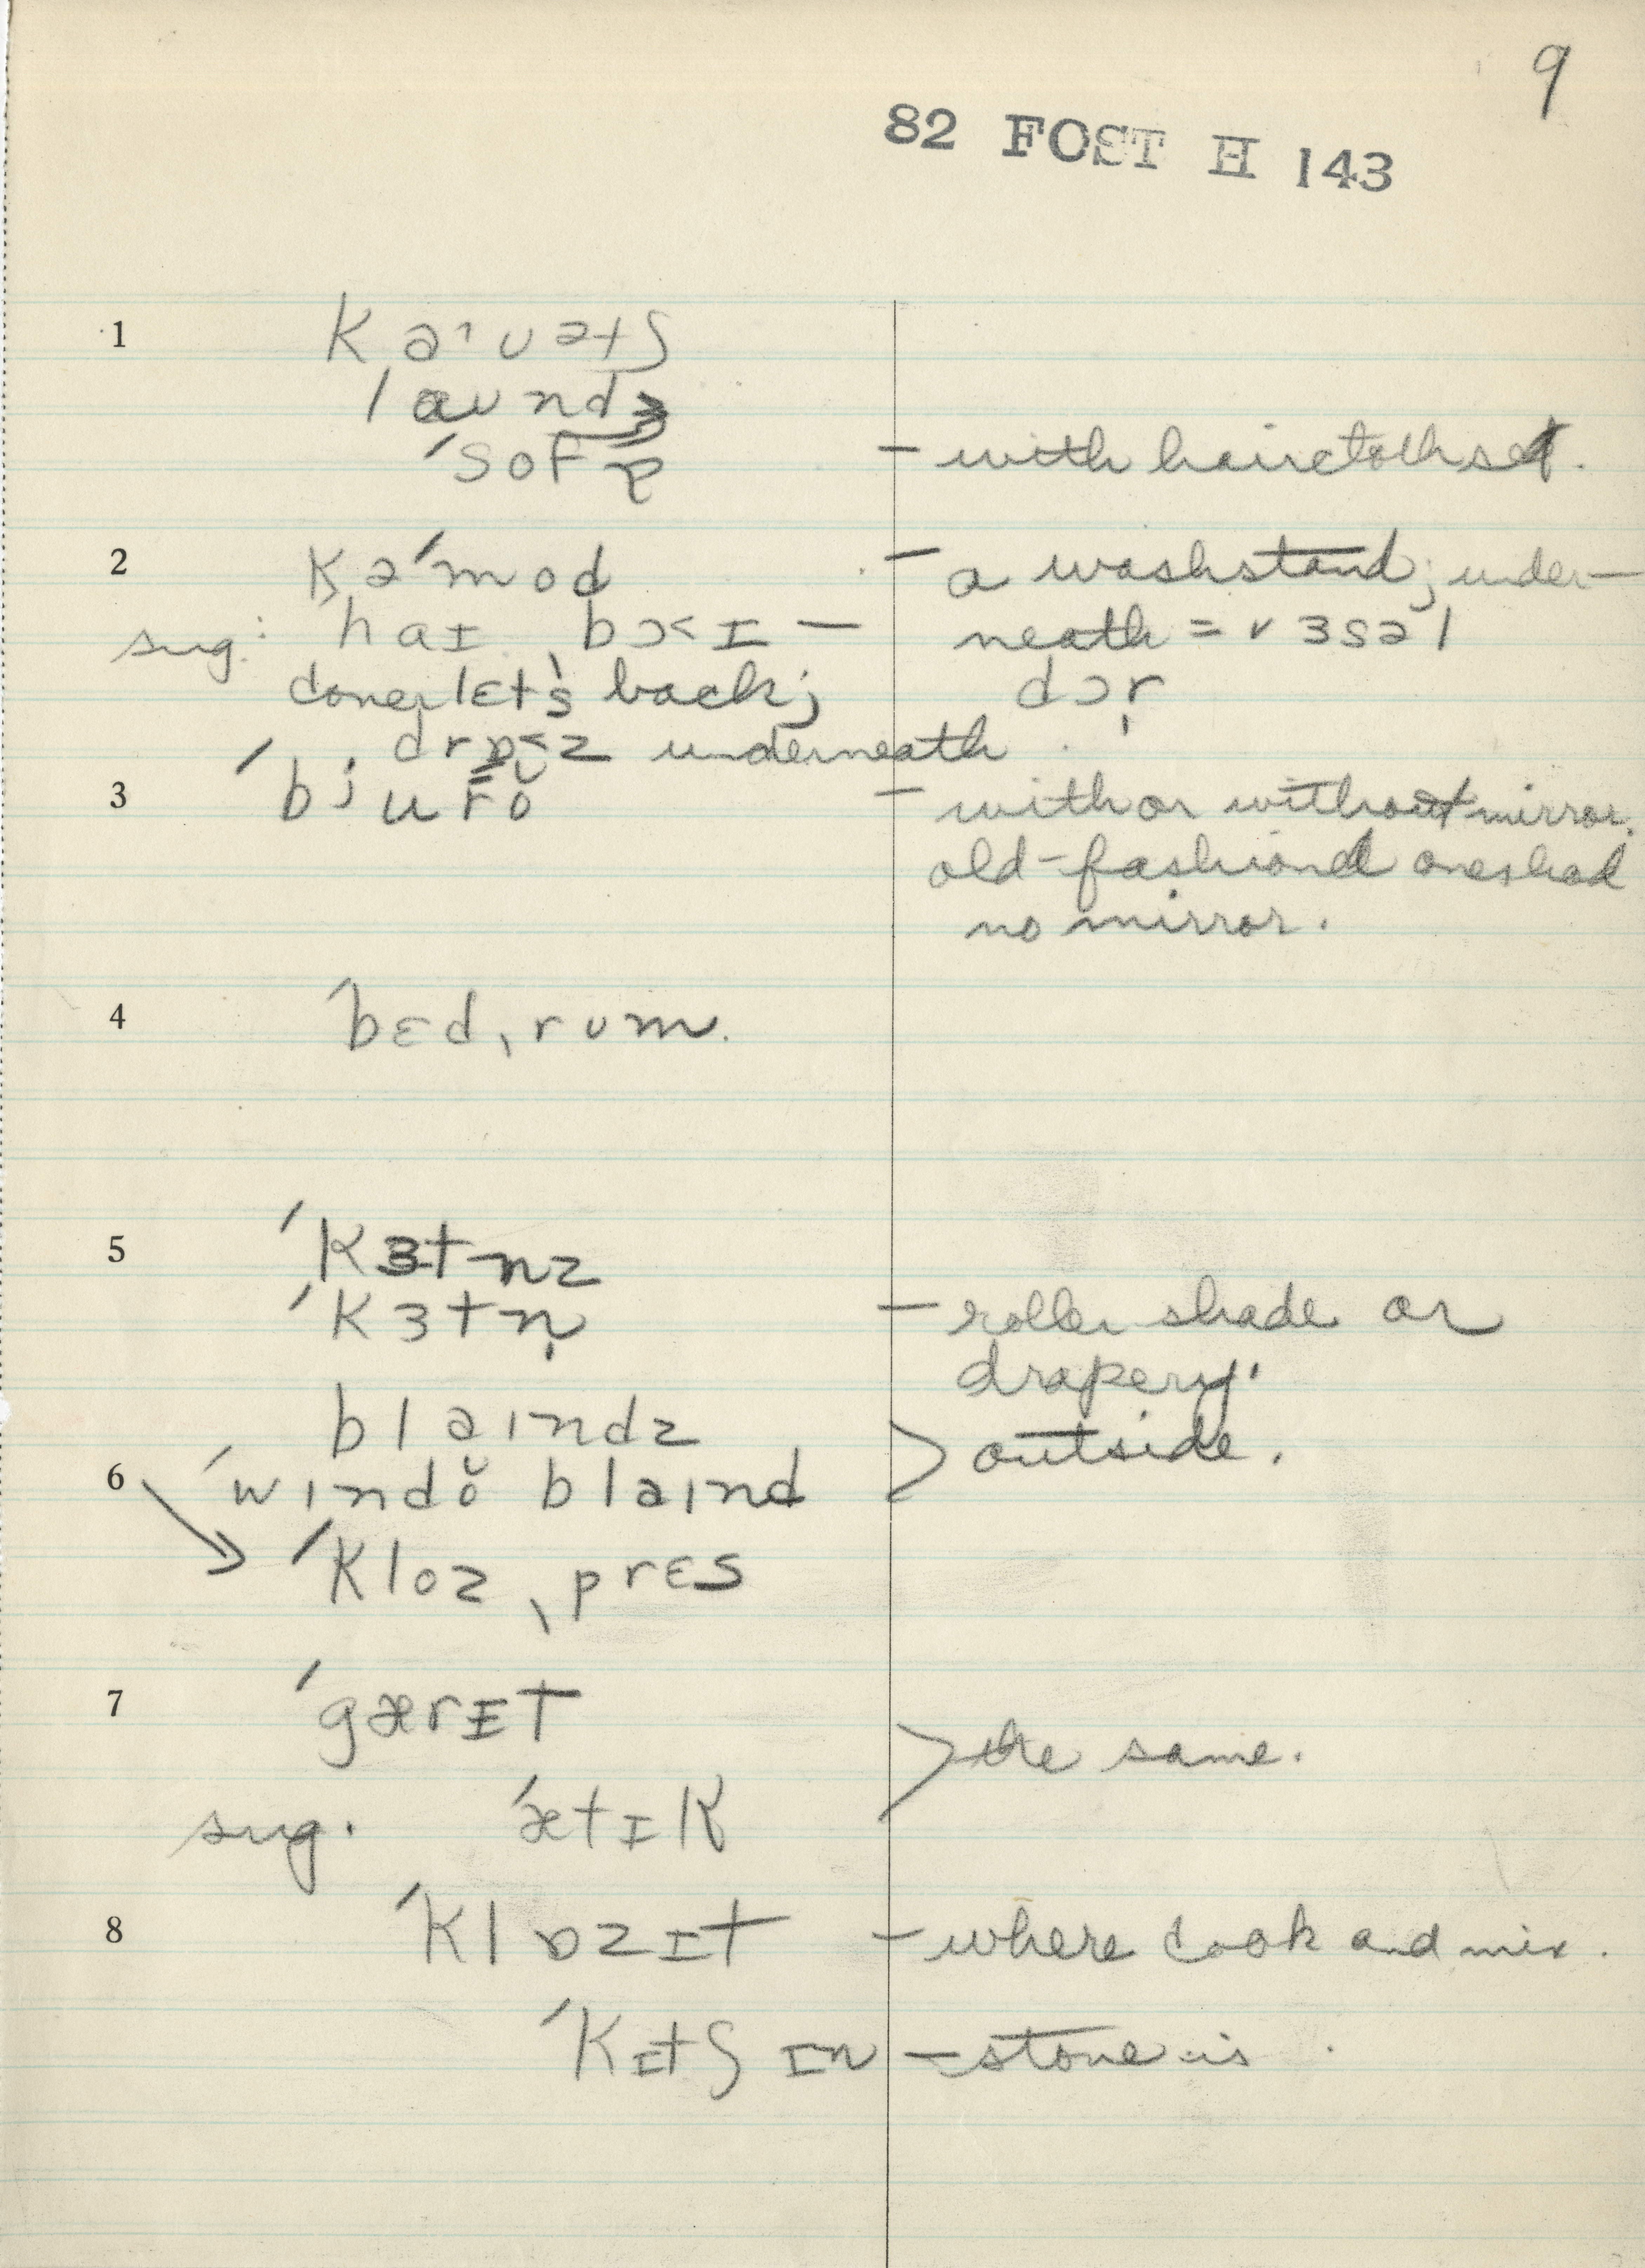 9
82 FOST H 143
1 kaˈʊətʃ
laʊndʒ
ˈsofə – with haircloth set.
2 kəˈmod – a washstand; under-
sug: haɪ bɔ<ɪ – neath = v3səl
let's back; dɔr̩
drɒ<z underneath.
3 ˈbjurŏ – with or without mirror.
old-fashioned ones had
no mirror.
4 ˈbɛdˌrʊm.
5 ˈkɜtnz
ˈkɜtn̩ – roller shade or
drapery.
blaɪndz > outside.
6 ˈwɪndŏ blaɪnd
ˈklozˌprɛs
7 ˈgærɪt > the same.
sug. ˈætɪk
8 ˈklɒzɪt – where cook and mix.
ˈkɪtʃɪn – stove is.